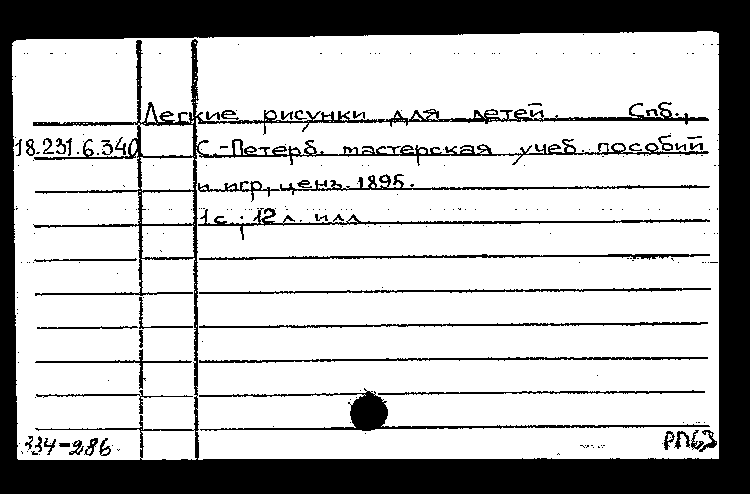 Легкие рисунки для детей. Спб.,
18.231.6.340 С.-Петерб. мастерская учеб. пособий
и игр, ценз. 1895.
1 с.; 12 л. илл.
334-286 РПбЗ